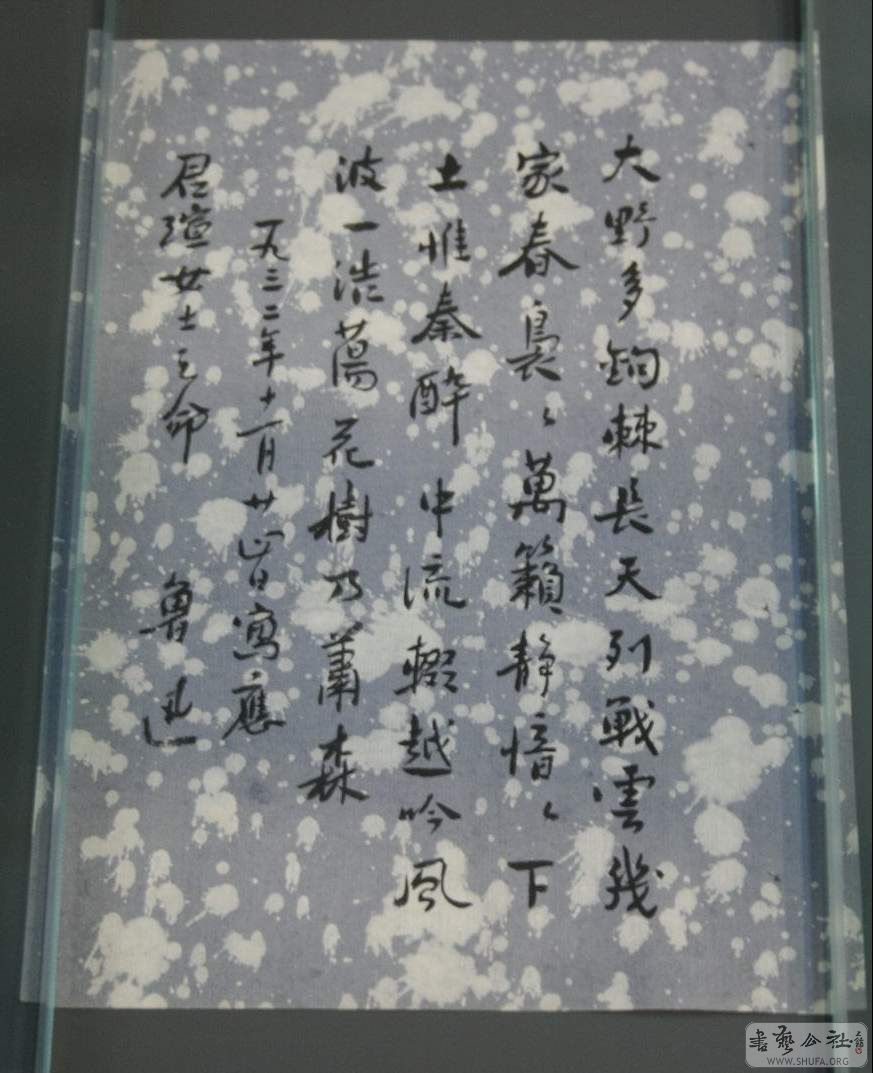 大野多鉤棘長天列戰雲幾
家春裊ゝ萬籟靜愔ゝ下
土惟秦醉中流輟越吟風
波一浩蕩花樹乃蕭森
一九三二年十一月廿日寫應
君瑄女士之命
魯迅
書藝公社
WWW.SHUFA.ORG